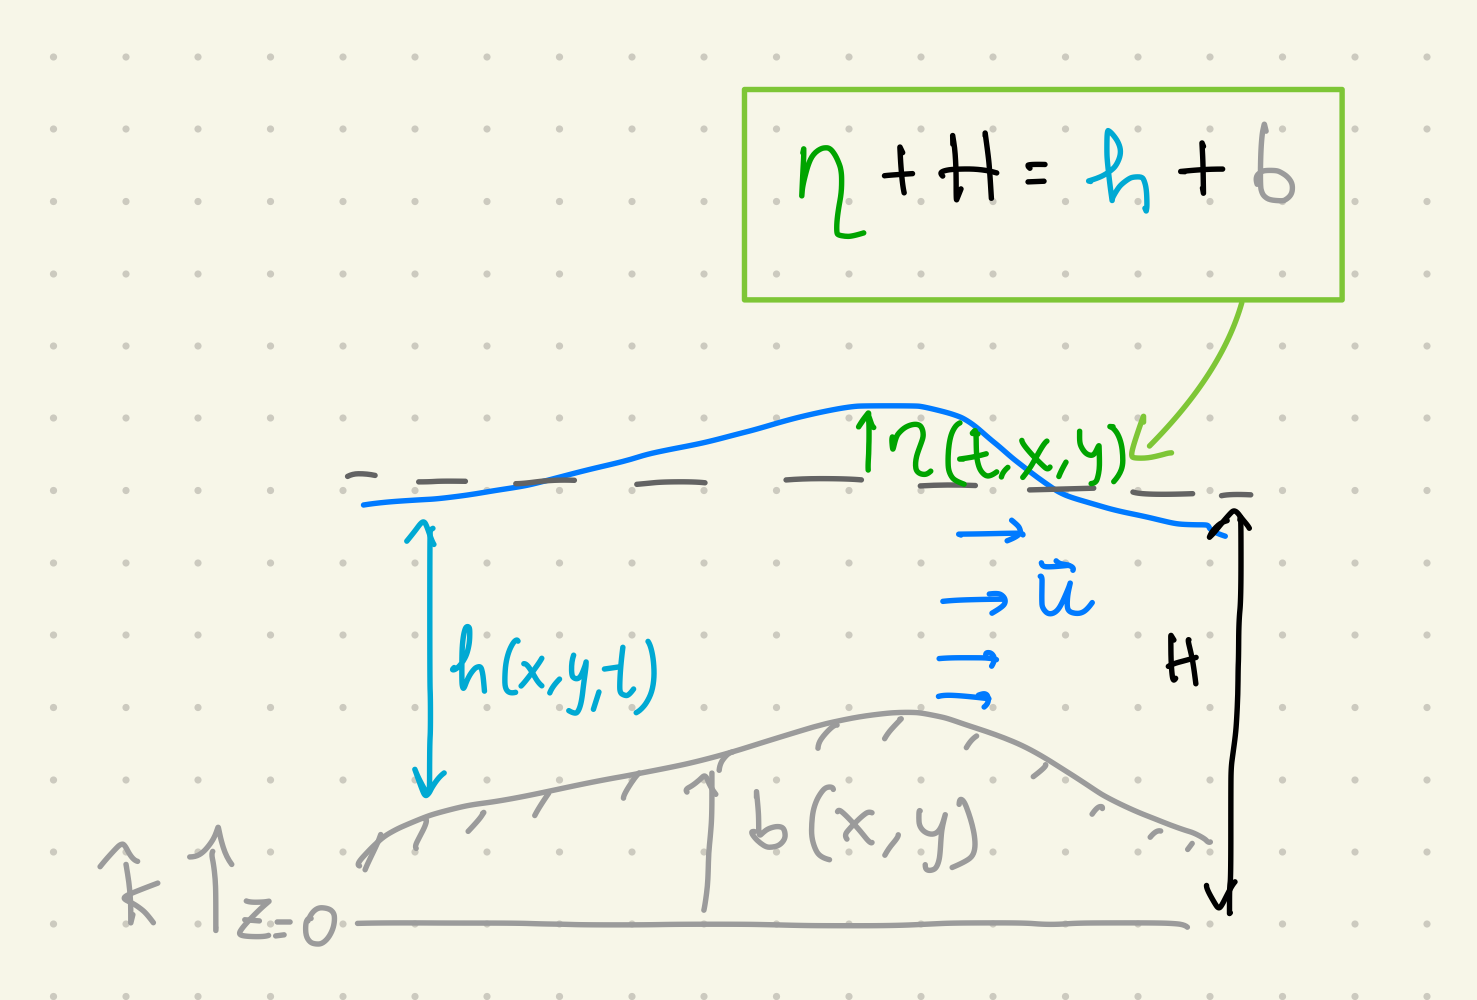 η + H = h + b
η(t,x,y)
ū
h(x,y,t)
H
b(x,y)
k̂
z=0